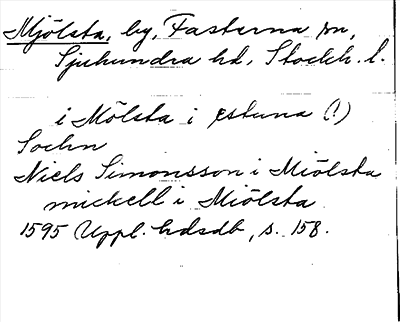 Mjölsta, by, Fasterna sn,
Sjuhundra hd, Stockh. l.
i Mölsta i estuna (!)
Sochn
Niels Simonsson i Miölsta
mickell i Miölsta
1595 Uppl. hdsdb, s. 158.